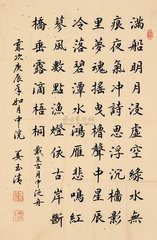 滿船明月浸虛空綠水無
痕夜氣沖詩思浮沉檣影
里夢魂搖曳櫓聲中星辰
冷落碧潭水鴻雁悲鳴紅
蓼風數點漁燈依古岸斷
橋垂露滴梧桐 戴復古月中泛舟
歲次庚辰年如月中浣 姜玉